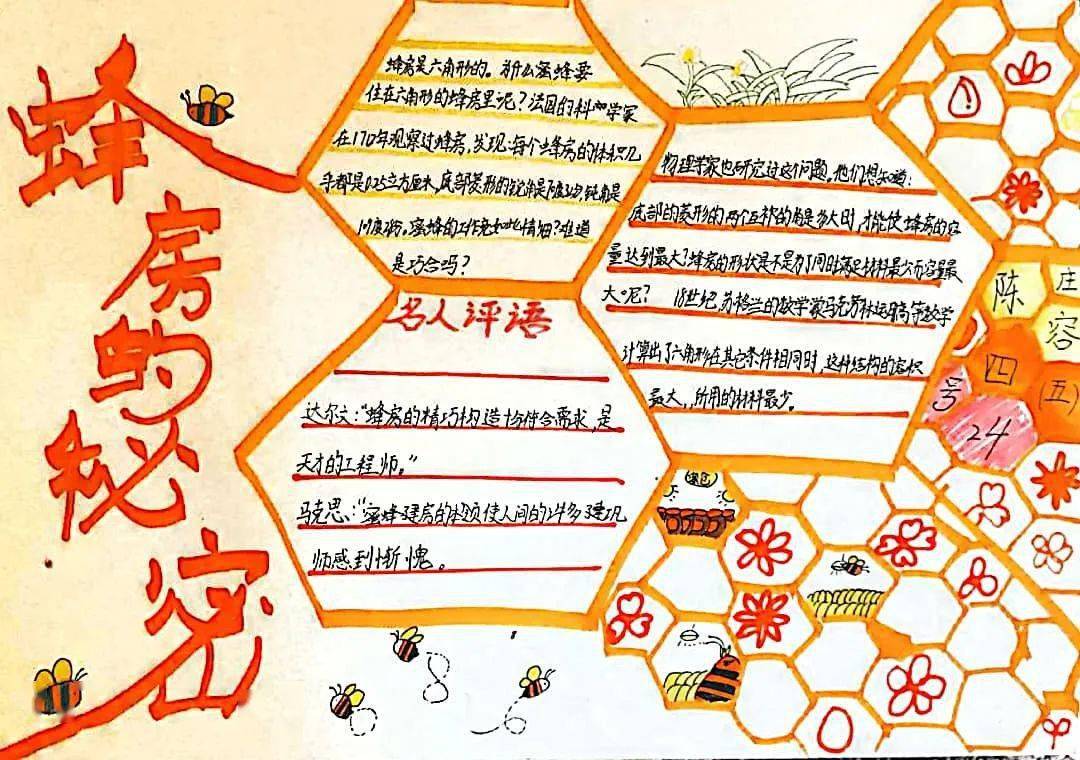 蜂房的秘密
蜂房是六角形的。为什么蜜蜂要
住在六角形的蜂房里呢？法国的科学家
在170年观察过蜂房，发现：每个蜂房的体积几
乎都是0.25立方厘米，底部菱形的锐角是 钝角是
蜜蜂的工作竟如此精细？难道
是巧合吗？
物理学家也研究过这个问题。他们想知道：
底部的菱形的两个互补的角是多大时，才能使蜂房的容
量达到最大？蜂房的形状是不是为了同时满足材料最少而容量最
大呢？ 18世纪，苏格兰的数学家马克劳林运用高等数学
计算出了六角形在其它条件相同时，这种结构的容积
最大，所用的材料最少。
名人评语
达尔文：“蜂房的精巧构造均符合需求，是
天才的工程师。”
马克思：“蜜蜂建房的本领使人间的许多建筑
师感到惭愧。
陈
庄
容
四
(五)
号
24